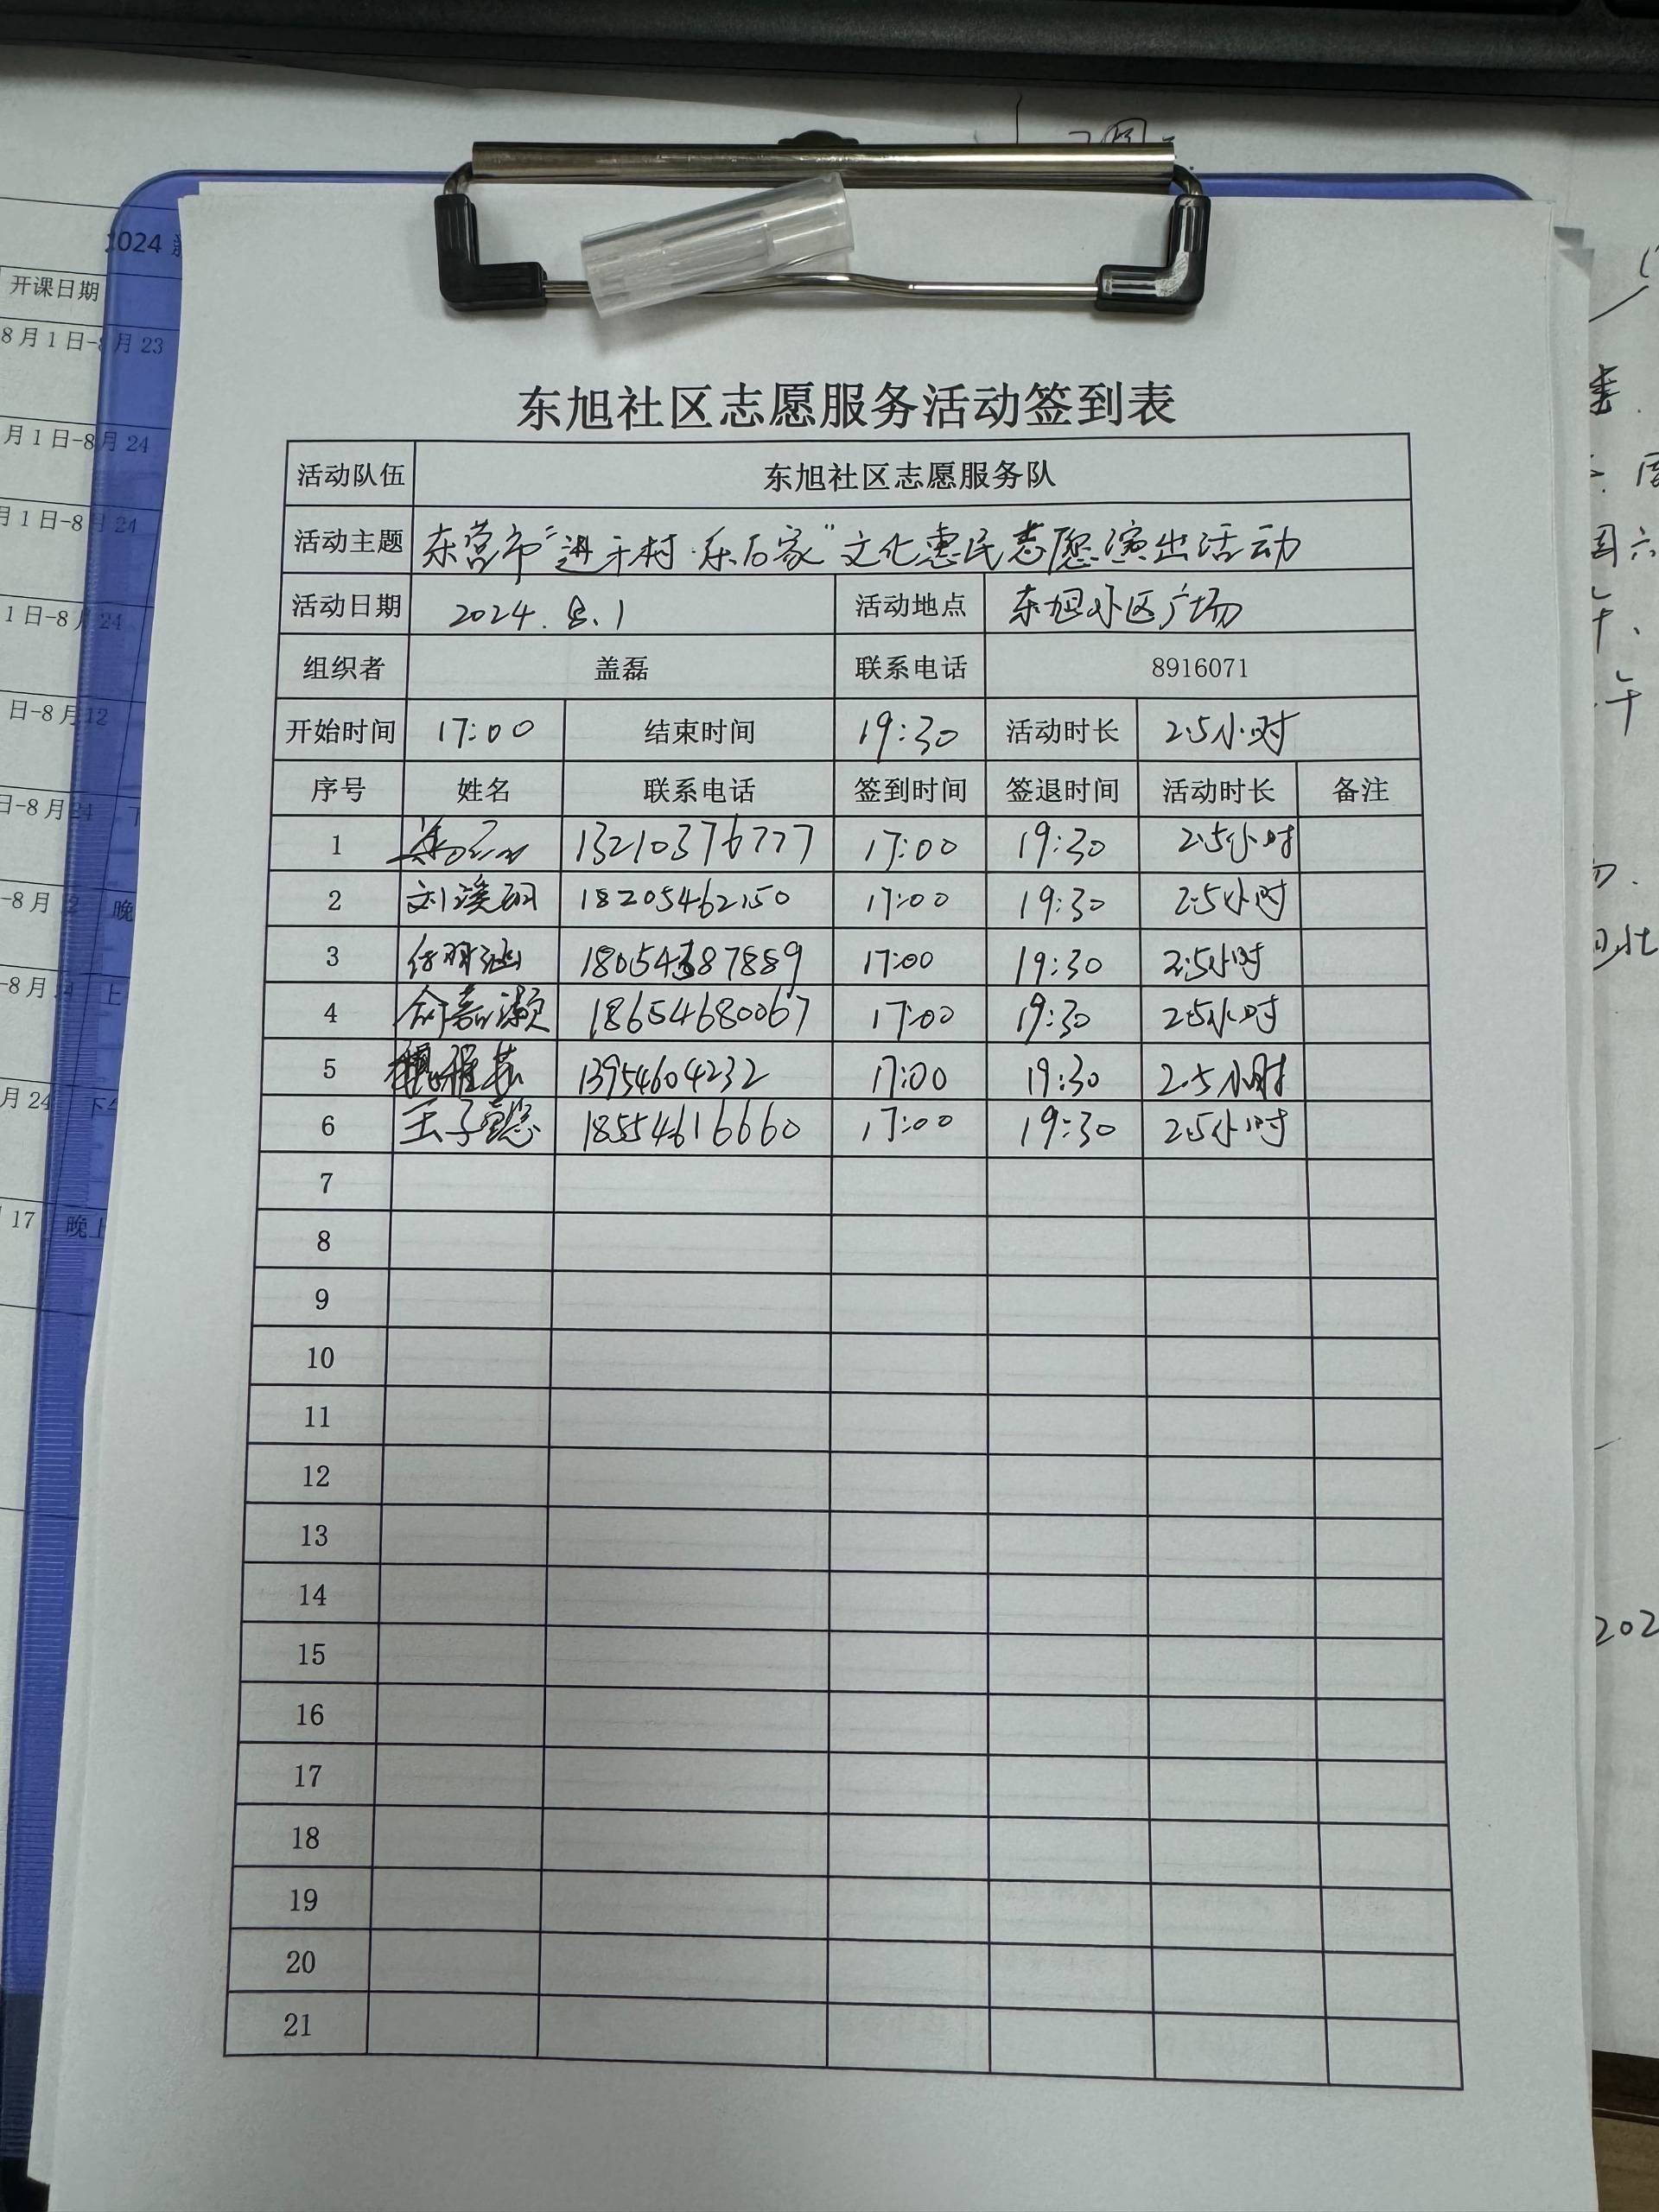 2024
开课日期
8月1日-8月23
月1日-8月24
月1日-8月24
1日-8月24
日-8月12
日-8月24 下
-8月2 晚
-8月 上
月24 下午
17 晚上
东旭社区志愿服务活动签到表
活动队伍 东旭社区志愿服务队
活动主题 东营市“进千村·乐万家”文化惠民志愿演出活动
活动日期 2024.8.1 活动地点 东旭小区广场
组织者 盖磊 联系电话 8916071
开始时间 17:00 结束时间 19:30 活动时长 2.5小时
序号 姓名 联系电话 签到时间 签退时间 活动时长 备注
1 13210376777 17:00 19:30 2.5小时
2 刘溪 18205462150 17:00 19:30 2.5小时
3 17:00 19:30 2.5小时
4 18654680067 17:00 19:30 2.5小时
5 13954604232 17:00 19:30 2.5小时
6 王子懿 18554616660 17:00 19:30 2.5小时
7
8
9
10
11
12
13
14
15
16
17
18
19
20
21
202